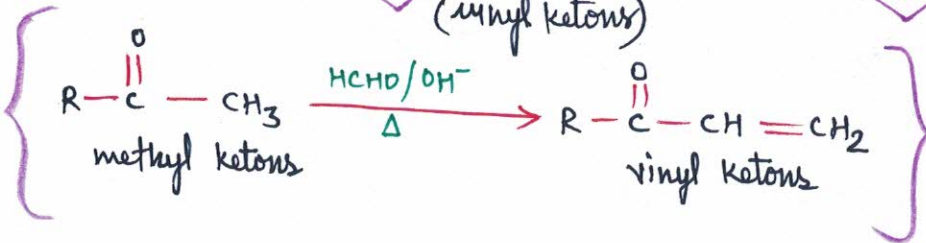 (vinyl ketons)
O O
R — C — CH3 HCHO/OH⁻ Δ R — C — CH = CH2
methyl ketons vinyl ketons